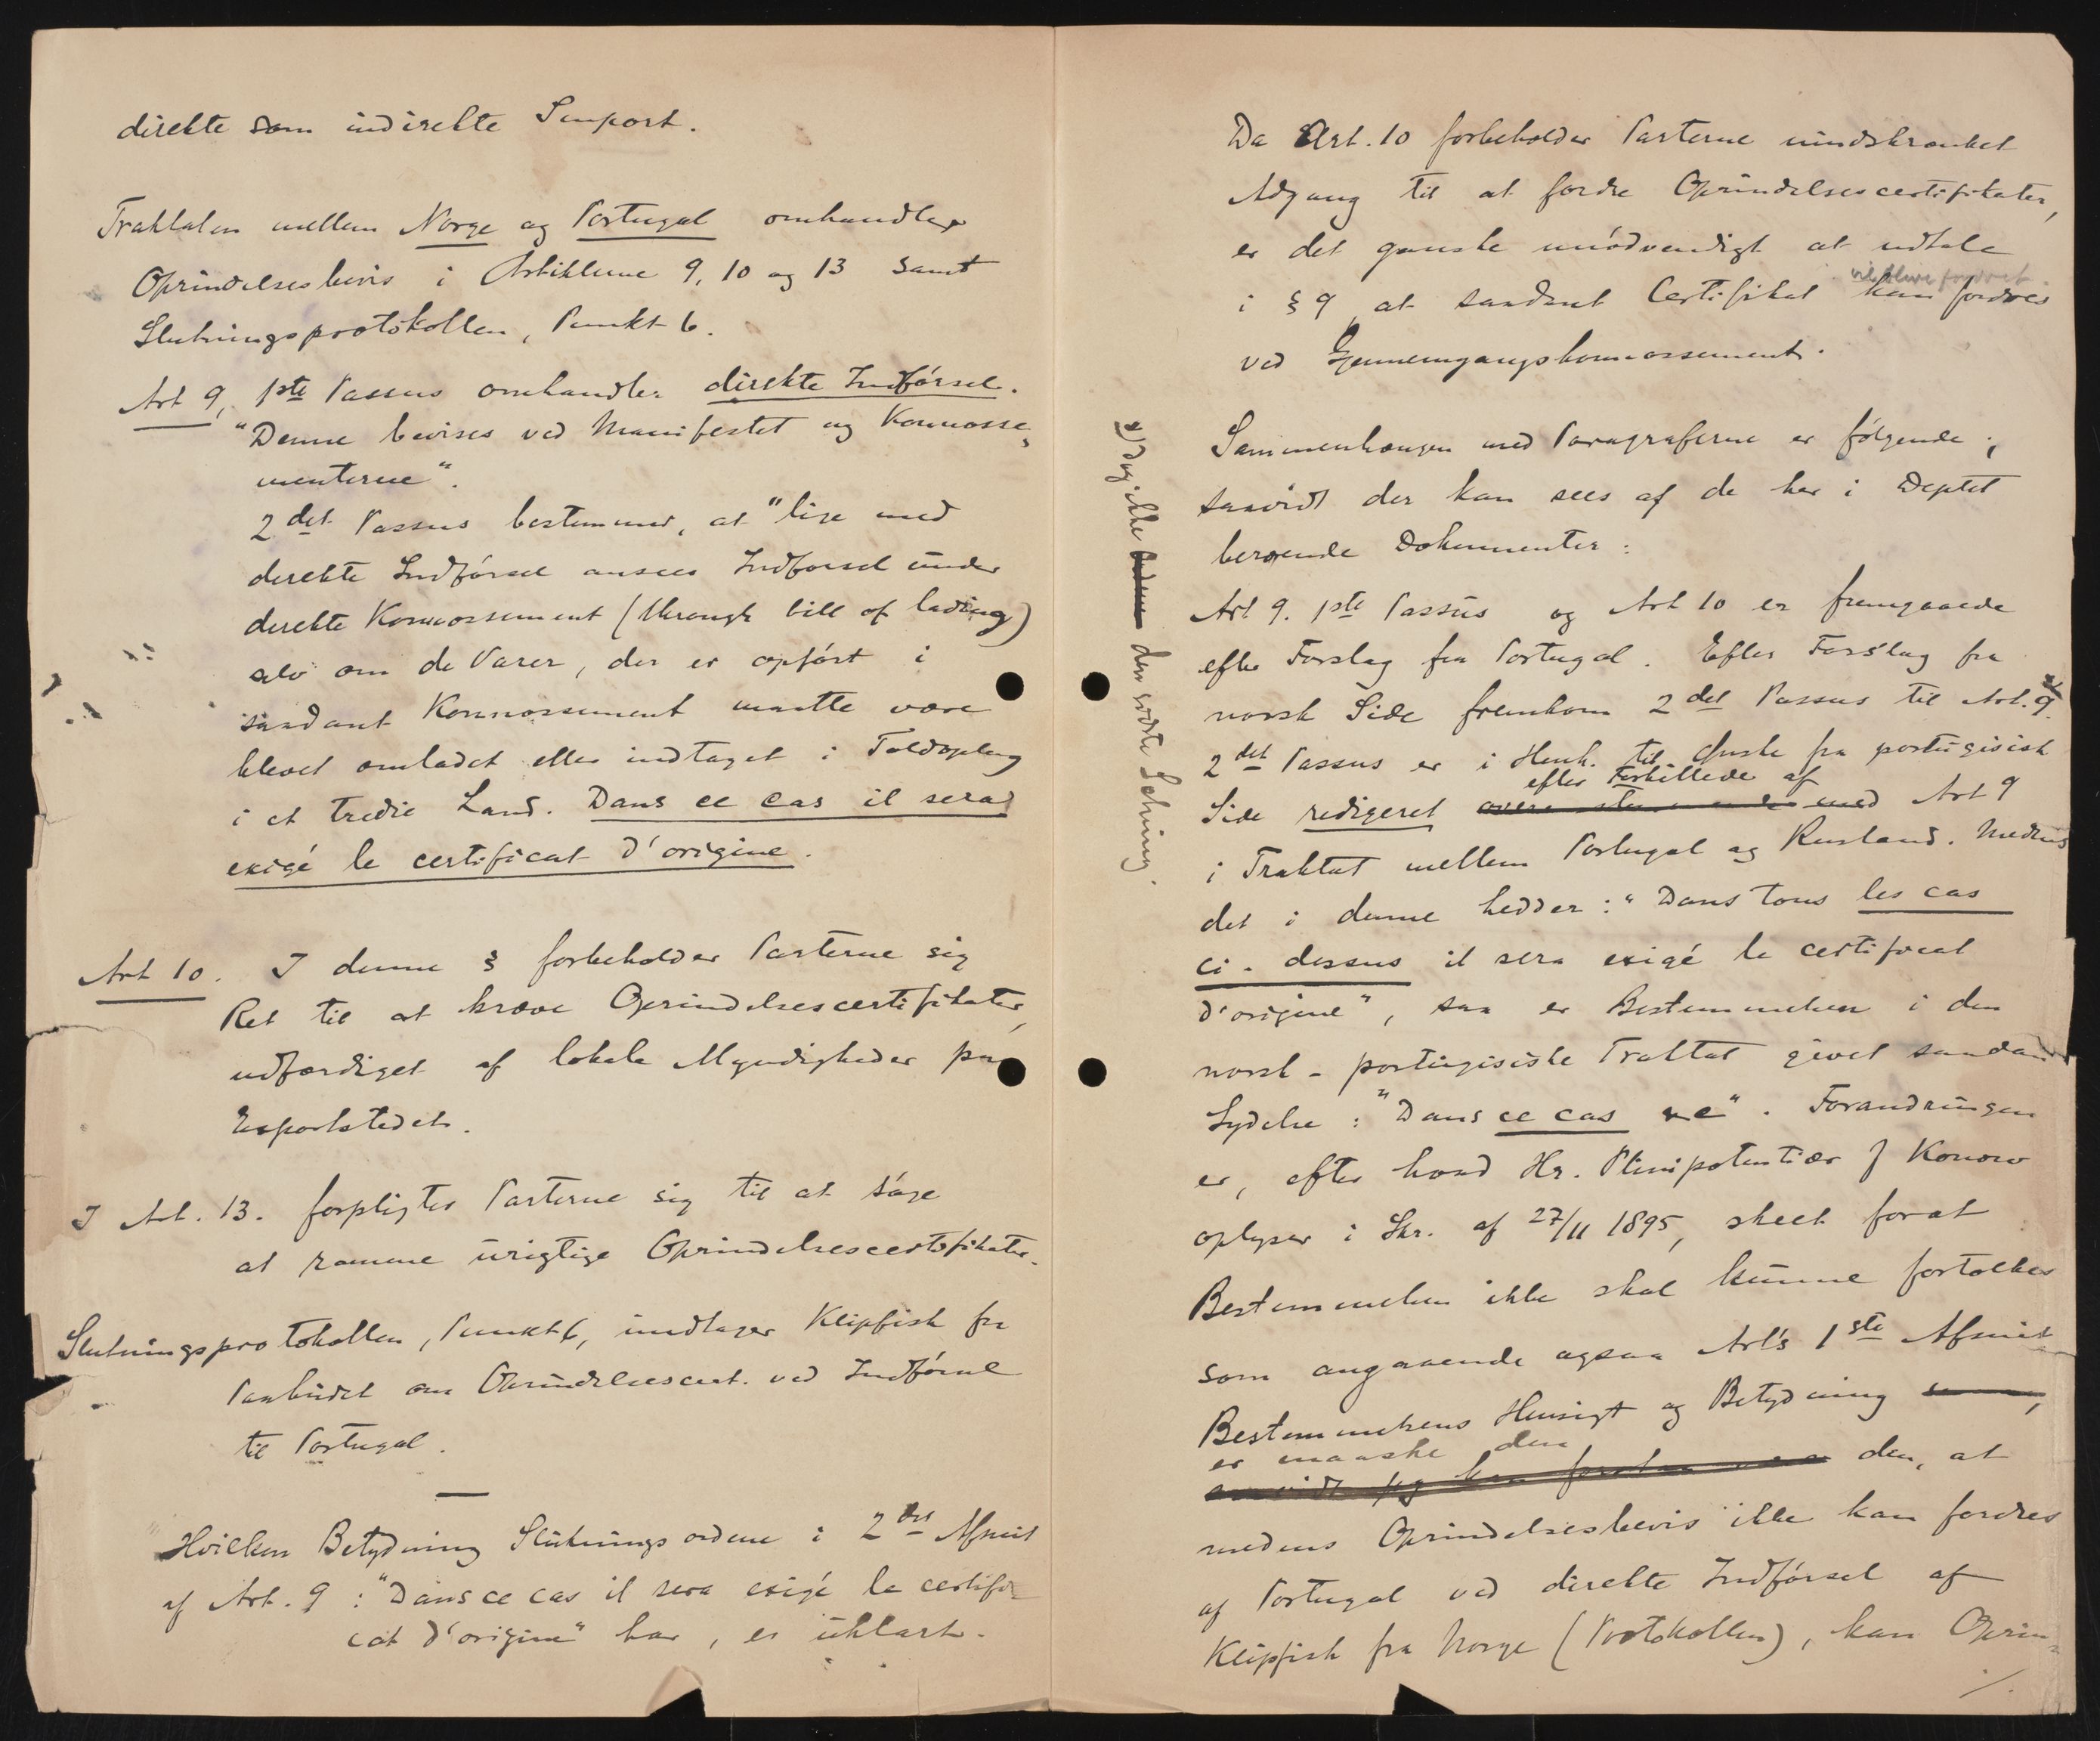 direkte som indirekte Import.
Traktaten mellem Norge og Portugal omhandler
Oprindelsesbevis i Artiklerne 9, 10 og 13 samt
Slutningsprotokollen, Punkt 6.
Art 9, 1ste Passus omhandler direkte Indførsel.
"Denne bevises ved Manifestet og Konnosse-
menterne".
2det Passus bestemmer, at "lige med
direkte Indførsel ansees Indførsel under
direkte Konnossement (through bill of lading)
selv om de Varer, der er opført i
saadant Konnossement maatte være
blevet omladet eller indtaget i Toldoplag
i et tredie Land. Dans ce cas il sera
exigé le certificat d'origine.
Art 10. I denne § forbeholder Parterne sig
Ret til at kræve Oprindelsescertifikater,
udfærdiget af lokale Myndigheder paa
Exportstedet.
I Art. 13. forpligter Parterne sig til at søge
at ramme urigtige Oprindelsescertifikater.
Slutningsprotokollen, Punkt 6, undtager Klipfisk fra
Paabudet om Oprindelsescert. ved Indførsel
til Portugal.
Hvilken Betydning Slutningsordene i 2det Afsnit
af Art. 9: "Dans ce cas il sera exigé le certifi-
cat d'origine" har, er uklart.
Da Art. 10 forbeholder Parterne uindskrænket
Adgang til at fordre Oprindelsescertifikater,
er det ganske unødvendigt at udtale
vil blive fordret
i § 9 at saadant Certifikat kan fordres
ved Gjennemgangskonnossement.
Sammenhængen med Paragraferne er følgende,
saavidt der kan sees af de her i Deptet
beroende Dokumenter:
Art 9. 1ste Passus og Art 10 er fremgaaede
efter Forslag fra Portugal. Efter Forslag fra
norsk Side fremkom 2det Passus til Art. 9. x)
2det Passus er i Henh. til Ønske fra portugisisk
efter Forbillede af
Side redigeret overensstemmende med Art 9
i Traktat mellem Portugal og Rusland. Medens
det i denne hedder: "Dans tous les cas
ci-dessus il sera exigé le certificat
d'origine", saa er Bestemmelsen i den
norsk-portugisiske Traktat givet saadan
Lydelse: "Dans ce cas etc". Forandringen
er, efter hvad Hr. Plenipotentiær J Konow
oplyser i Skr. af 27/11 1895, skeet forat
Bestemmelsen ikke skal kunne fortolkes
som angaaende ogsaa Art's 1ste Afsnit
Bestemmelsens Hensigt og Betydning
er maaske den
saavidt jeg kan forstaa den, at
medens Oprindelsesbevis ikke kan fordres
af Portugal ved direkte Indførsel af
Klipfisk fra Norge (Protokollen), kan Oprin-
/.
x) dog ikke den sidste Sætning.